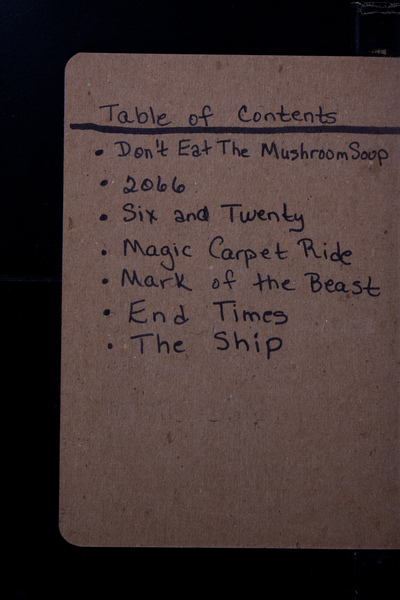 Table of Contents
• Don't Eat The Mushroom Soup
• 2066
• Six and Twenty
• Magic Carpet Ride
• Mark of the Beast
• End Times
• The Ship